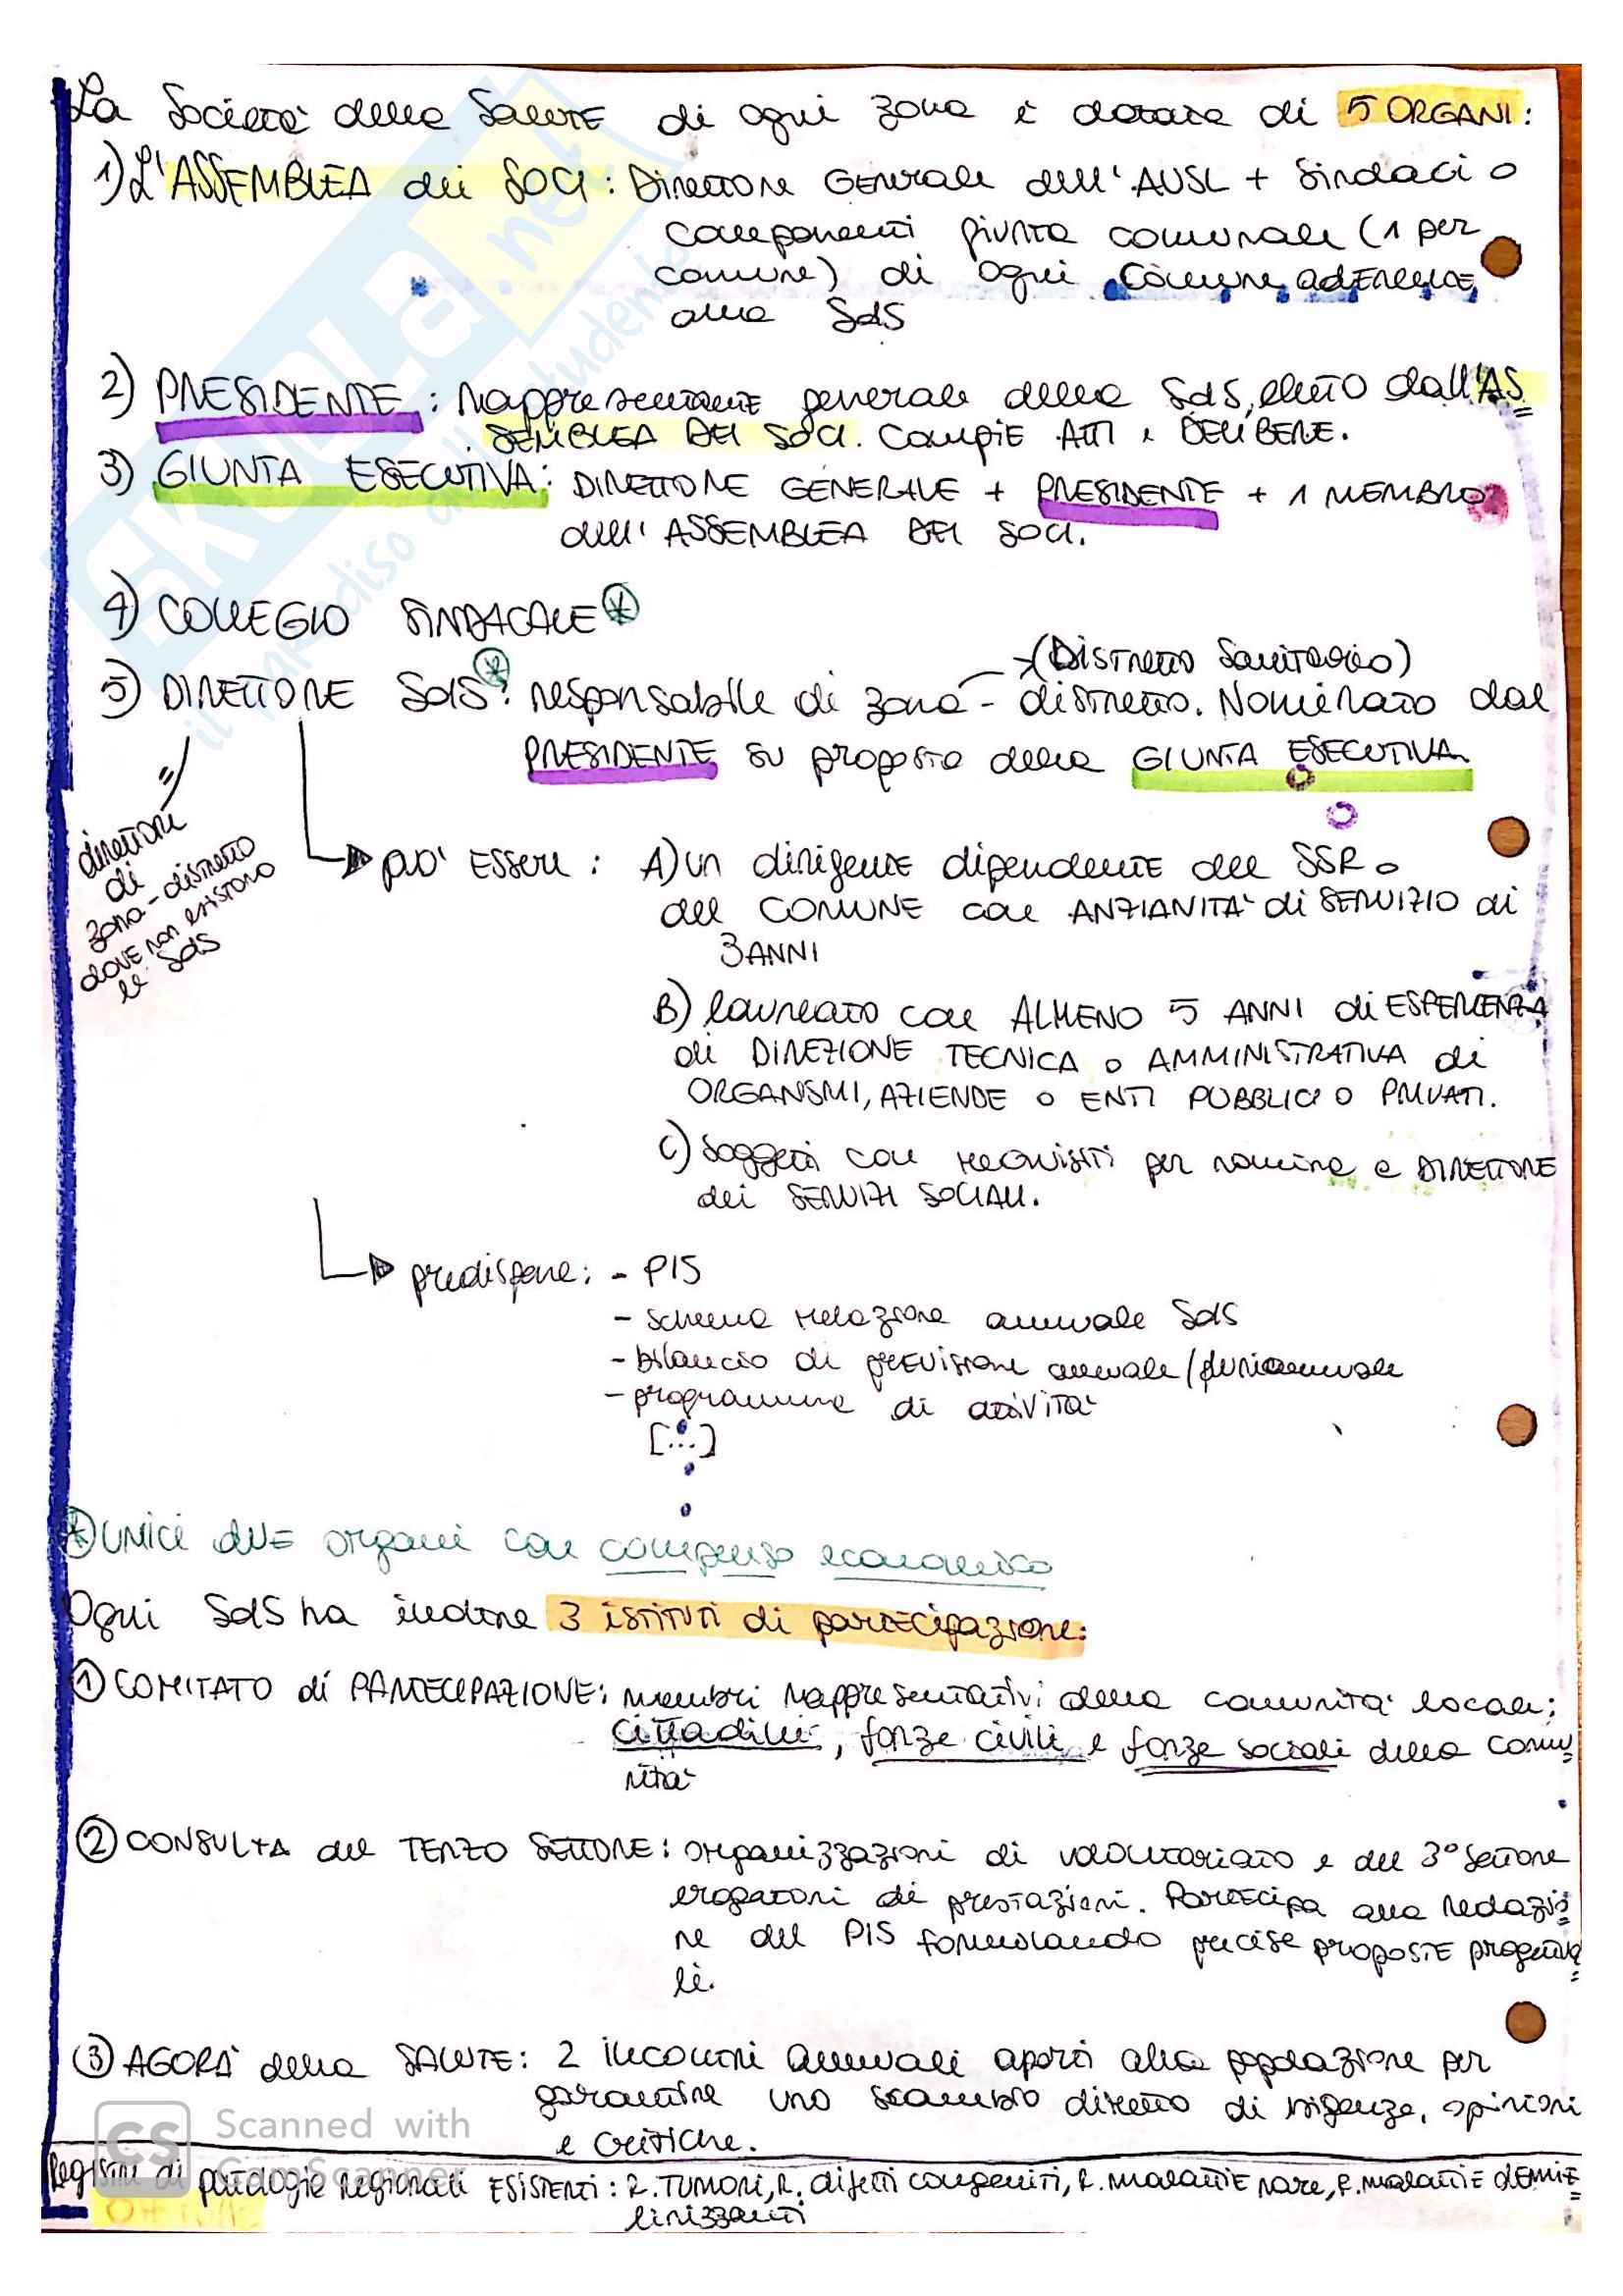 La Società della Salute di ogni zona è dotata di 5 ORGANI:
1) L'ASSEMBLEA dei SOCI: Direttore Generale dell'AUSL + Sindaci o
componenti giunta comunale (1 per
comune) di ogni Comune aderente
alla SdS
2) PRESIDENTE: rappresentante generale della SdS, eletto dall'AS
SEMBLEA DEI SOCI. COMPIE ATTI e DELIBERE.
3) GIUNTA ESECUTIVA: DIRETTORE GENERALE + PRESIDENTE + 1 MEMBRO
dell'ASSEMBLEA DEI SOCI.
4) COLLEGIO SINDACALE *
→(Distretto Sanitario)
5) DIRETTORE SdS *: responsabile di zona-distretto. Nominato dal
PRESIDENTE su proposta della GIUNTA ESECUTIVA
=
direttori
di
zona-distretto
dove non esistono
le SdS
→ può essere: A) un dirigente dipendente del SSR o
del COMUNE con ANZIANITÀ di SERVIZIO di
3 ANNI
B) laureato con ALMENO 5 ANNI di ESPERIENZA
di DIREZIONE TECNICA o AMMINISTRATIVA di
ORGANISMI, AZIENDE o ENTI PUBBLICI o PRIVATI.
C) Soggetti con requisiti per nomina a DIRETTORE
dei SERVIZI SOCIALI.
→ predispone: - PIS
- schema relazione annuale SdS
- bilancio di previsione annuale/pluriannuale
- programma di attività
[...]
* unici due organi con compenso economico
Ogni SdS ha inoltre 3 istituti di partecipazione:
① COMITATO di PARTECIPAZIONE: membri rappresentativi della comunità locale;
cittadini, forze civili e forze sociali della comu
nità
② CONSULTA del TERZO SETTORE: organizzazioni di volontariato e del 3° settore
erogatori di prestazioni. Partecipa alla redazio
ne del PIS formulando precise proposte progettua
li.
③ AGORÀ della SALUTE: 2 incontri annuali aperti alla popolazione per
garantire uno scambio diretto di esigenze, opinioni
e critiche.
Registri di patologie regionali ESISTENTI: R. TUMORI, R. difetti congeniti, R. malattie rare, R. malattie demie
linizzanti
SKUOLA.net
il paradiso dello studente
CS Scanned with
CamScanner